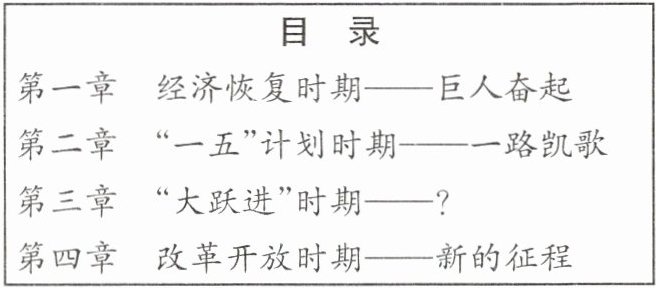 目 录
第一章 经济恢复时期——巨人奋起
第二章 “一五”计划时期——一路凯歌
第三章 “大跃进”时期——?
第四章 改革开放时期——新的征程